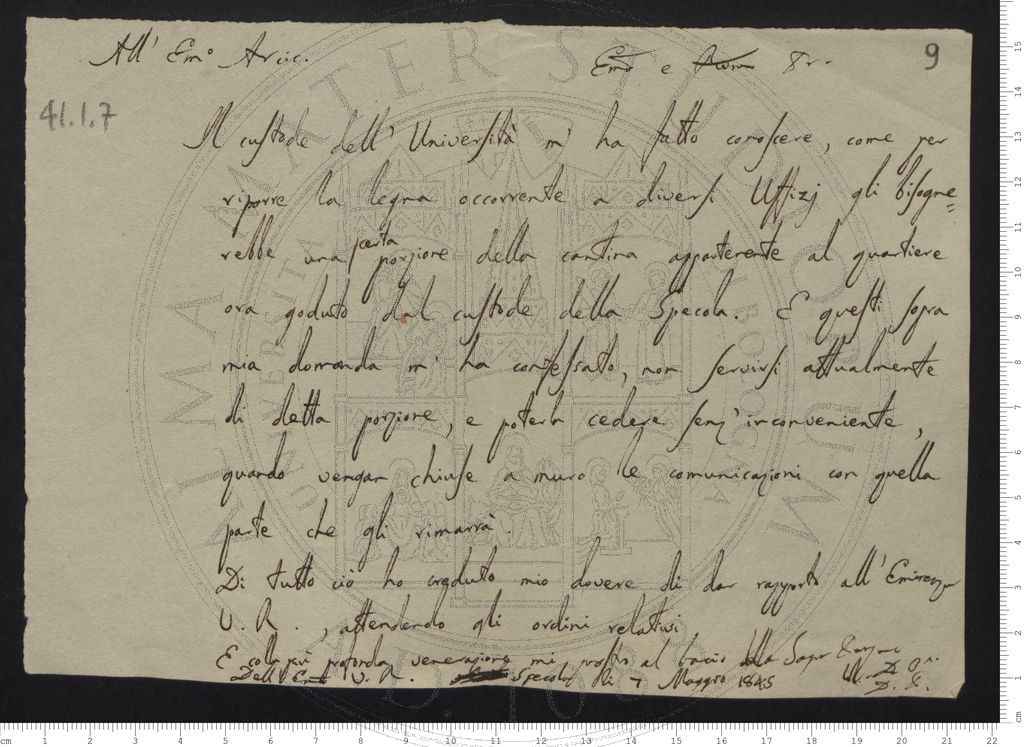 All' Em.o Arciv.
Em.o e Rev.mo Pr.
9
41.1.7
Il custode dell' Università m' ha fatto conoscere, come per
riporre la legna occorrente a diversi Uffizj gli bisogne=
rebbe una certa porzione della cantina appartenente al quartiere
ora goduto dal custode della Specola. E questi sopra
mia domanda m' ha confessato, non servirsi attualmente
di detta porzione, e poterla cedere senz' inconveniente,
quando vengan chiuse a muro le comunicazioni con quella
parte che gli rimarrà.
Di tutto ciò ho creduto mio dovere di dar rapporto all' Eminenza
V. R , attendendo gli ordini relativi
E colla più profonda venerazione mi prostro al bacio della Sagra Porpora
Dell' Em. V. R. Specola li 7 Maggio 1845